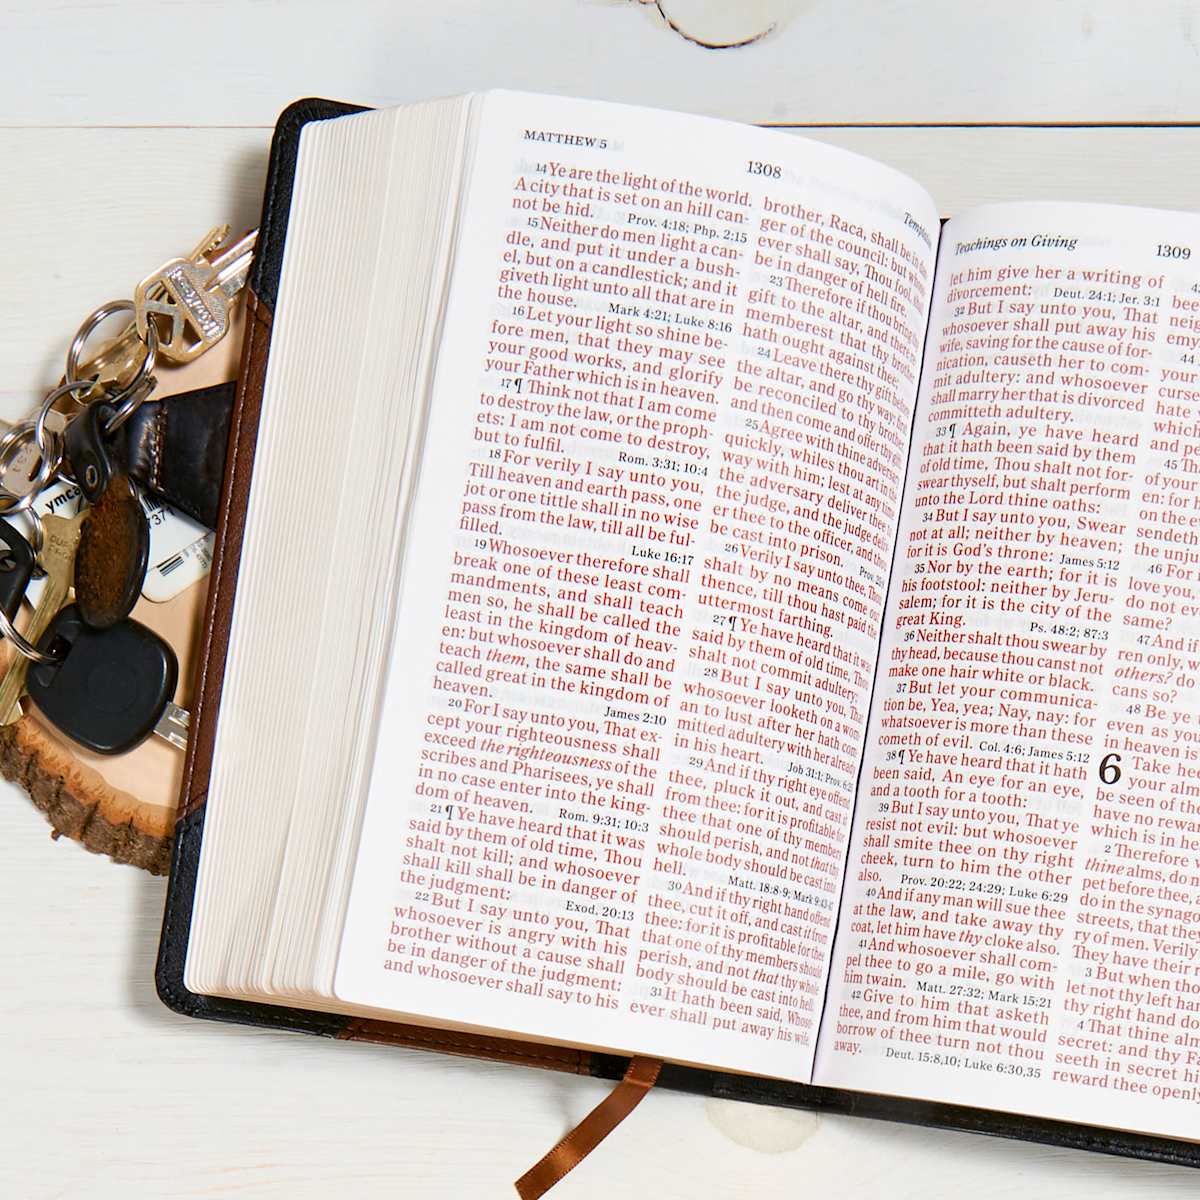 MATTHEW 5
1308
14 Ye are the light of the world.
A city that is set on an hill can-
not be hid. Prov. 4:18; Php. 2:15
15 Neither do men light a can-
dle, and put it under a bush-
el, but on a candlestick; and it
giveth light unto all that are in
the house. Mark 4:21; Luke 8:16
16 Let your light so shine be-
fore men, that they may see
your good works, and glorify
your Father which is in heaven.
17 ¶ Think not that I am come
to destroy the law, or the proph-
ets: I am not come to destroy,
but to fulfil. Rom. 3:31; 10:4
18 For verily I say unto you,
Till heaven and earth pass, one
jot or one tittle shall in no wise
pass from the law, till all be ful-
filled. Luke 16:17
19 Whosoever therefore shall
break one of these least com-
mandments, and shall teach
men so, he shall be called the
least in the kingdom of heav-
en: but whosoever shall do and
teach them, the same shall be
called great in the kingdom of
heaven. James 2:10
20 For I say unto you, That ex-
cept your righteousness shall
exceed the righteousness of the
scribes and Pharisees, ye shall
in no case enter into the king-
dom of heaven. Rom. 9:31; 10:3
21 ¶ Ye have heard that it was
said by them of old time, Thou
shalt not kill; and whosoever
shall kill shall be in danger of
the judgment: Exod. 20:13
22 But I say unto you, That
whosoever is angry with his
brother without a cause shall
be in danger of the judgment:
and whosoever shall say to his
brother, Raca, shall be in
ger of the council: but
ever shall say, Thou fool, shall
be in danger of hell fire.
23 Therefore if thou bring thy
gift to the altar, and there
memberest that thy brother
hath ought against thee;
24 Leave there thy gift before
the altar, and go thy way; first
be reconciled to thy brother,
and then come and offer thy gift.
25 Agree with thine adversary
quickly, whiles thou art in the
way with him; lest at any time
the adversary deliver thee to
the judge, and the judge deliv-
er thee to the officer, and thou
be cast into prison.
26 Verily I say unto thee, Thou
shalt by no means come out
thence, till thou hast paid the
uttermost farthing.
27 ¶ Ye have heard that it was
said by them of old time, Thou
shalt not commit adultery:
28 But I say unto you, That
whosoever looketh on a wom-
an to lust after her hath com-
mitted adultery with her already
in his heart. Job 31:1; Prov. 6:25
29 And if thy right eye offend
thee, pluck it out, and cast it
from thee: for it is profitable for
thee that one of thy members
should perish, and not that thy
whole body should be cast into
hell. Matt. 18:8-9; Mark 9:43-47
30 And if thy right hand offend
thee, cut it off, and cast it from
thee: for it is profitable for thee
that one of thy members should
perish, and not that thy whole
body should be cast into hell.
31 It hath been said, Whoso-
ever shall put away his wife,
Teachings on Giving
1309
let him give her a writing of
divorcement: Deut. 24:1; Jer. 3:1
32 But I say unto you, That
whosoever shall put away his
wife, saving for the cause of for-
nication, causeth her to com-
mit adultery: and whosoever
shall marry her that is divorced
committeth adultery.
33 ¶ Again, ye have heard
that it hath been said by them
of old time, Thou shalt not for-
swear thyself, but shalt perform
unto the Lord thine oaths:
34 But I say unto you, Swear
not at all; neither by heaven;
for it is God's throne: James 5:12
35 Nor by the earth; for it is
his footstool: neither by Jeru-
salem; for it is the city of the
great King. Ps. 48:2; 87:3
36 Neither shalt thou swear by
thy head, because thou canst not
make one hair white or black.
37 But let your communica-
tion be, Yea, yea; Nay, nay: for
whatsoever is more than these
cometh of evil. Col. 4:6; James 5:12
38 ¶ Ye have heard that it hath
been said, An eye for an eye,
and a tooth for a tooth:
39 But I say unto you, That ye
resist not evil: but whosoever
shall smite thee on thy right
cheek, turn to him the other
also. Prov. 20:22; 24:29; Luke 6:29
40 And if any man will sue thee
at the law, and take away thy
coat, let him have thy cloke also.
41 And whosoever shall com-
pel thee to go a mile, go with
him twain. Matt. 27:32; Mark 15:21
42 Give to him that asketh
thee, and from him that would
borrow of thee turn not thou
away. Deut. 15:8,10; Luke 6:30,35
44
your
curse
hate
which
and pe
45
of your
en: for
on the e
sendeth
the unju
46 For i
love you,
do not ev
same?
47 And if
ren only, w
others? do
cans so?
48 Be ye
even as you
in heaven is
6 Take hee
your alm
be seen of the
have no rewa
which is in he
2 Therefore
thine alms, do n
pet before thee, a
do in the synago
streets, that they
ry of men. Verily
They have their r
3 But when tho
let not thy left han
thy right hand do
4 That thine alm
secret: and thy Fa
seeth in secret hi
reward thee openly
ymca